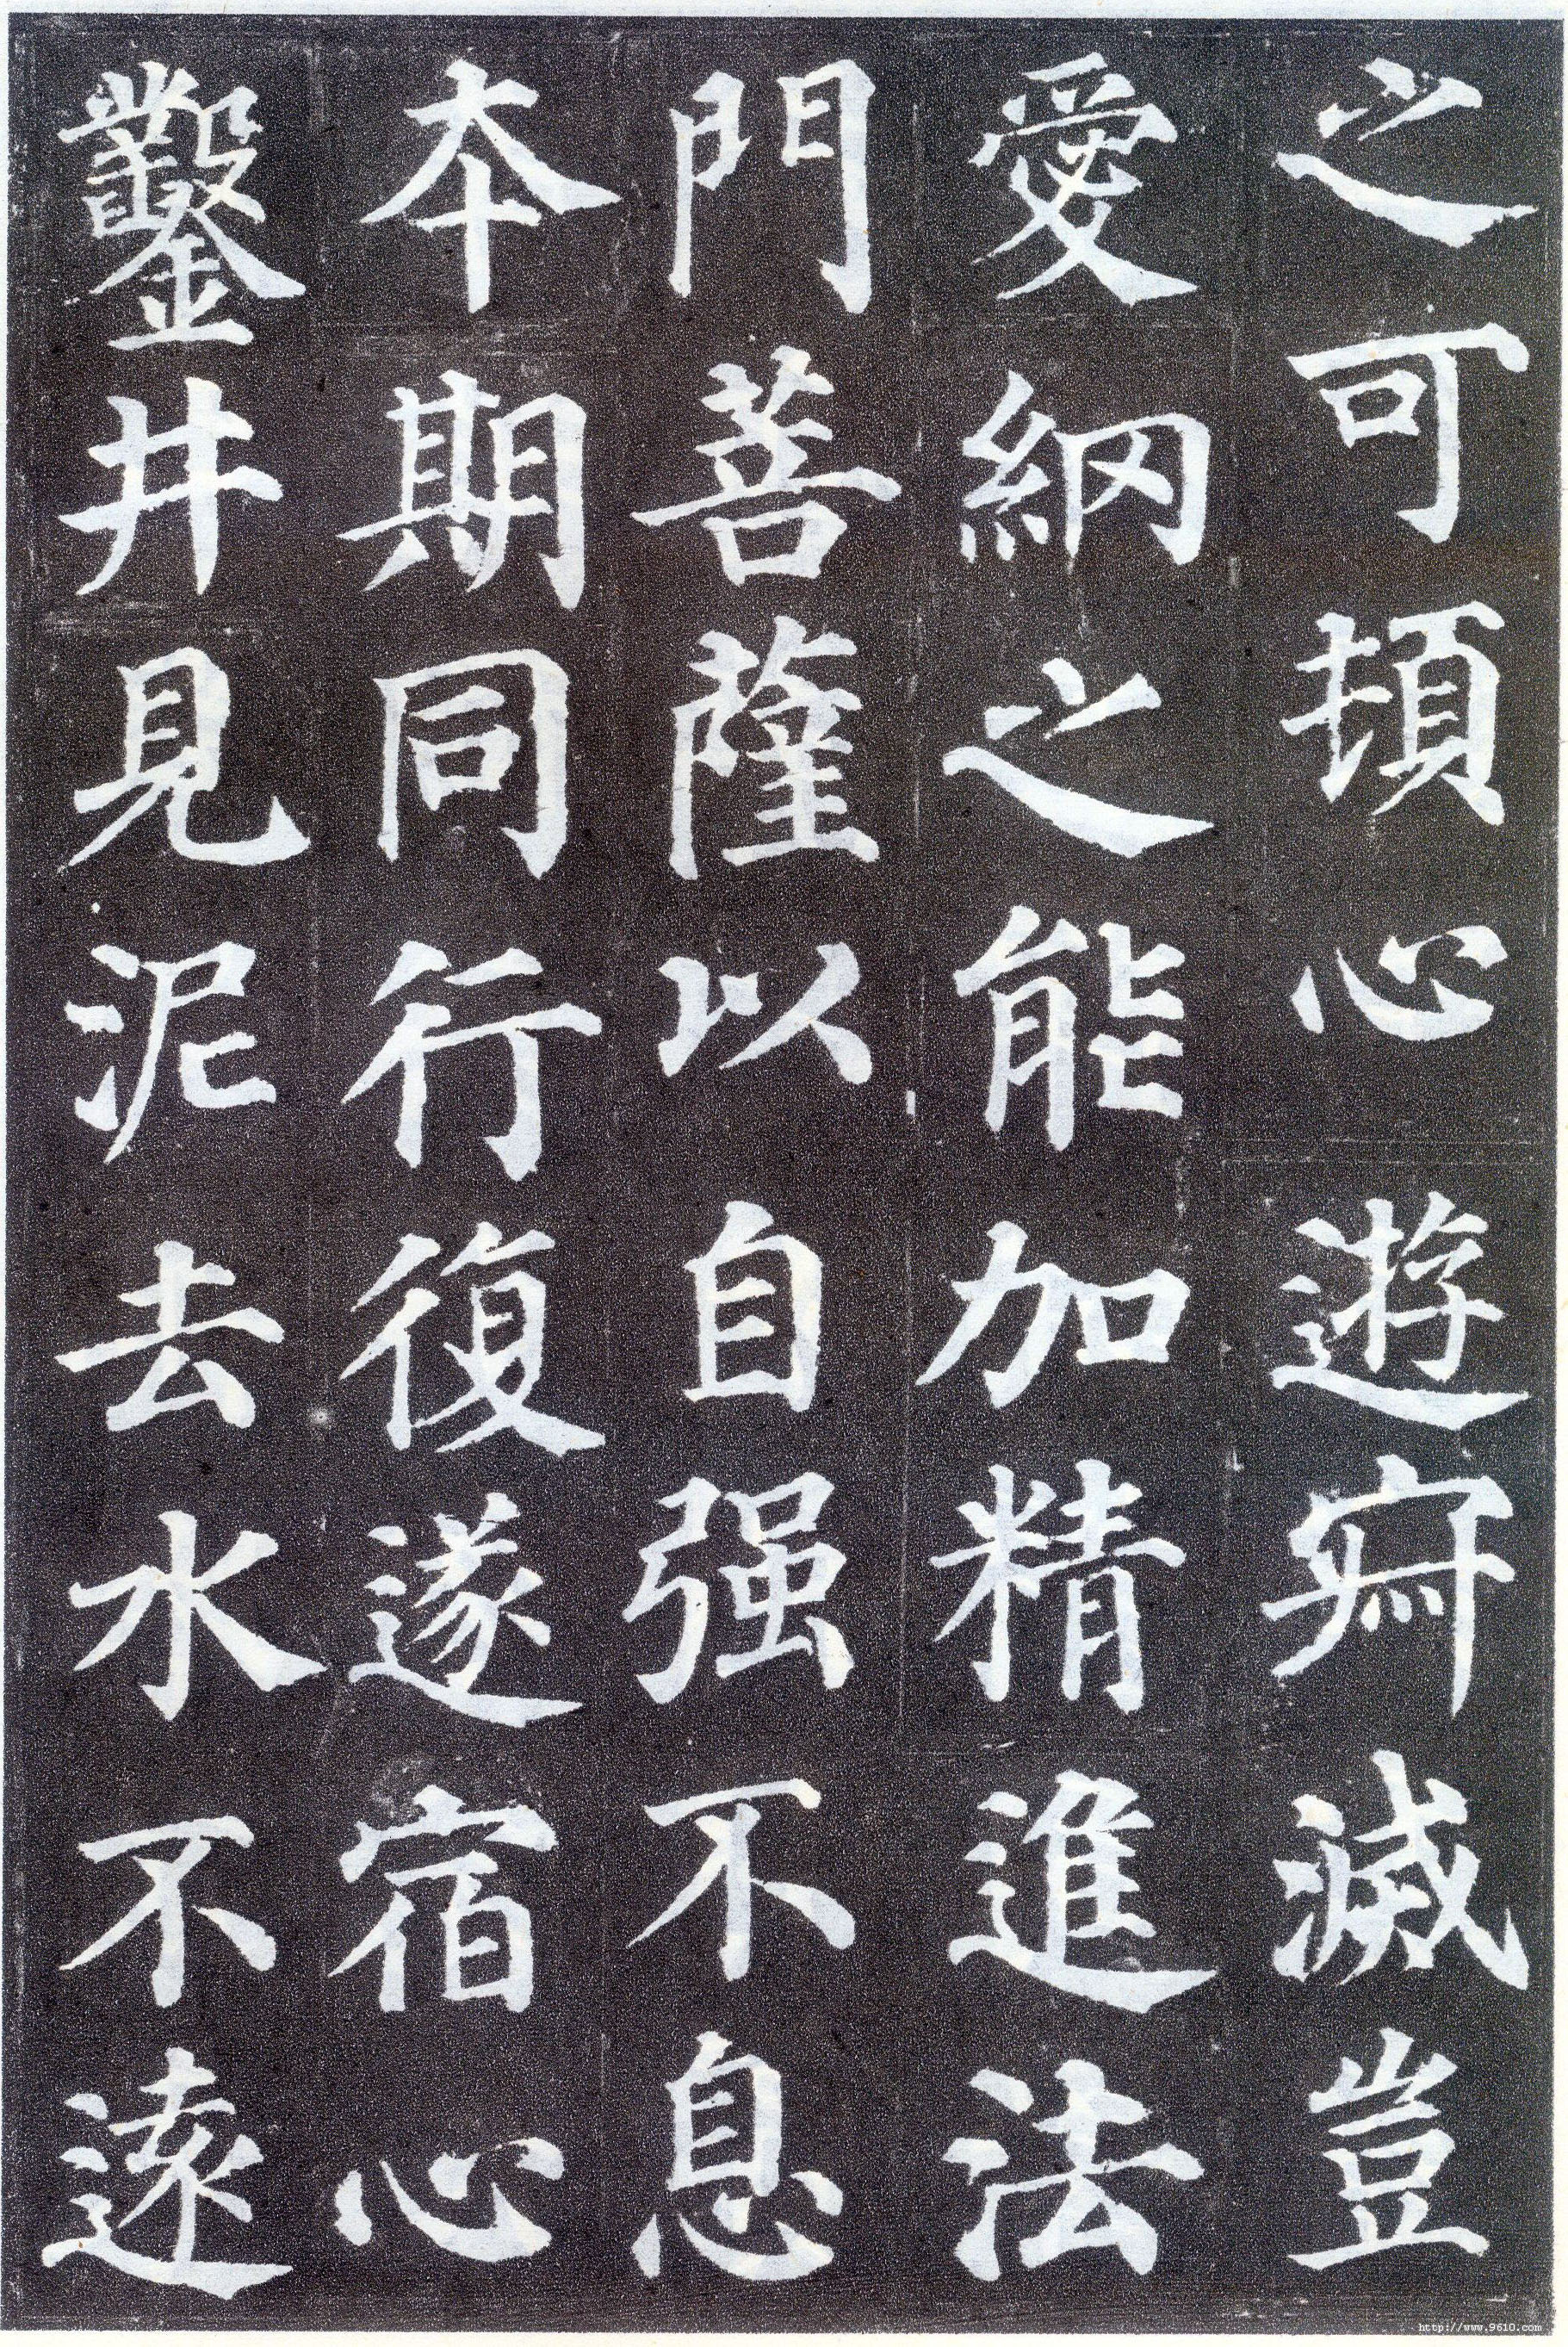 之可頓心遊寂滅豈
愛網之能加精進法
門菩薩以自强不息
本期同行復遂宿心
鑿井見泥去水不遠
http://www.9610.com